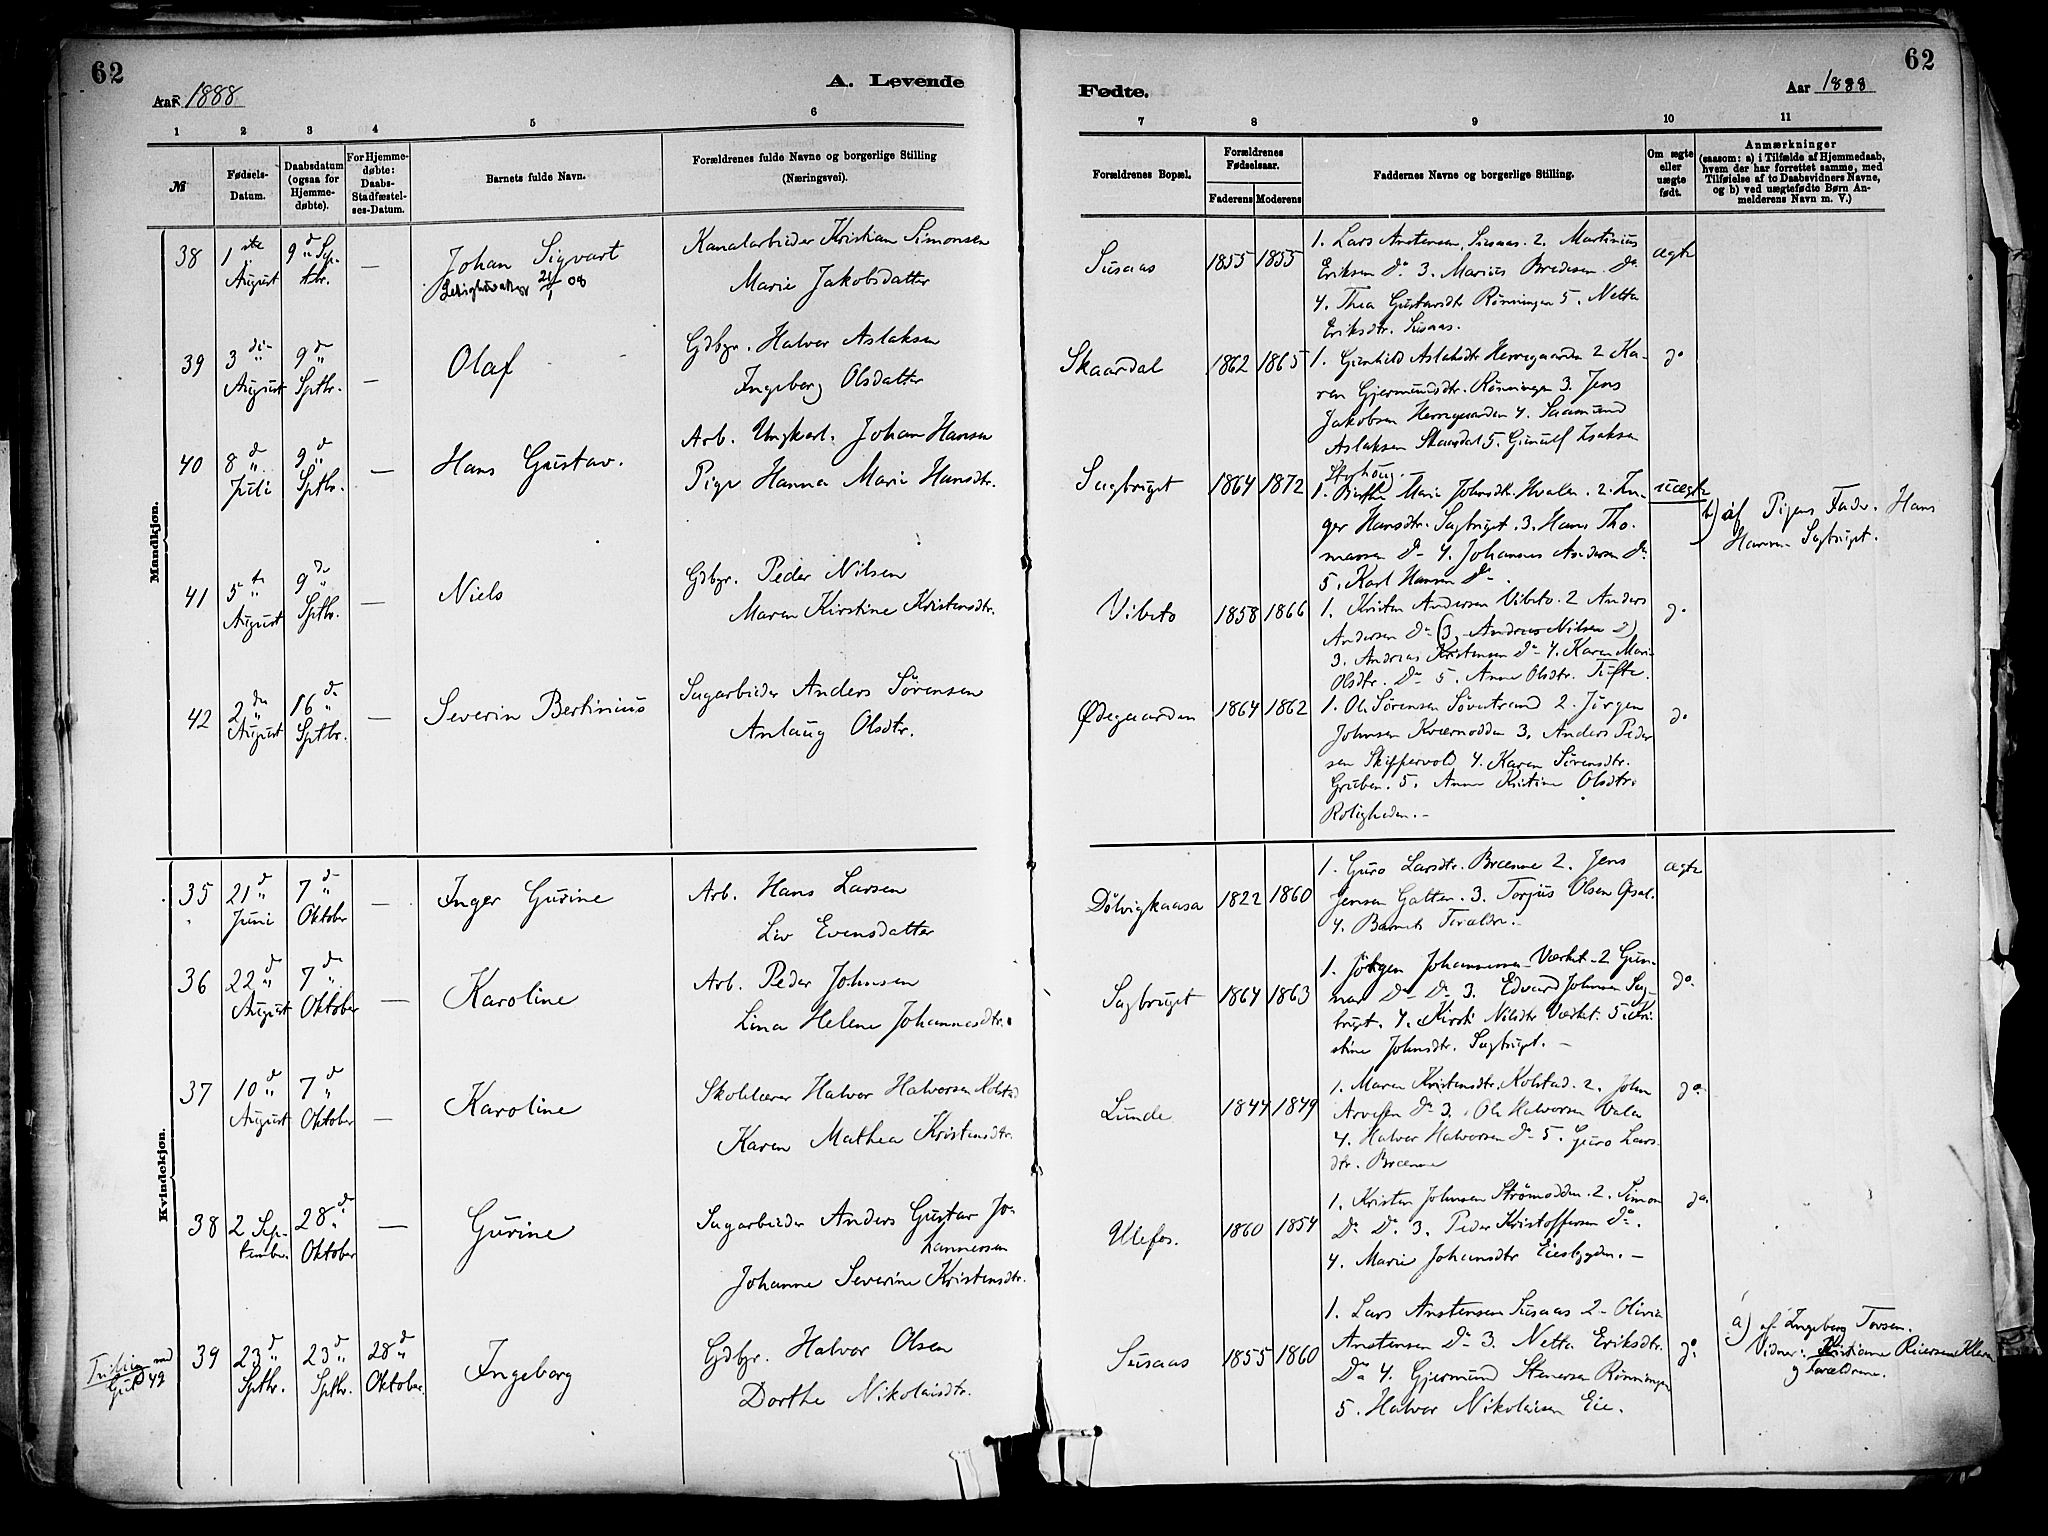 62
Aar 1888
A. Levende
Fødte.
Aar 1888
62
1 2 3 4 5 6 7 8 9 10 11
№
Fødsels-
Datum.
Daabsdatum
(ogsaa for
Hjemme-
døbte).
For Hjemme-
døbte:
Daabs-
Stadfæstel-
ses-Datum.
Barnets fulde Navn.
Forældrenes fulde Navne og borgerlige Stilling
(Næringsvei).
Forældrenes Bopæl.
Forældrenes
Fødselsaar.
Faderens Moderens
Faddernes Navne og borgerlige Stilling.
Om ægte
eller
uægte
født.
Anmærkninger
(saasom: a) i Tilfælde af Hjemmedaab,
hvem der har forrettet samme, med
Tilføielse af to Daabsvidners Navne,
og b) ved uægtefødte Børn An-
melderens Navn m. V.)
Mandkjøn.
38
1ste
August
9d Sep-
tbr.
—
Johan Sigvart
21/1 08
Kanalarbeider Kristian Simonsen
Marie Jakobsdatter
Susaas
1855 1855
1. Lars Anstensen, Susaas. 2. Martinius
Eriksen Do 3. Marius Bredesen. Do
4. Thea Gustavsdtr Rønningen 5. Netta
Eriksdtr. Susaas.
ægte
39
3die
August
9d
Sptbr.
—
Olaf
Gdbgr. Halvor Aslaksen
Ingeborg Olsdatter
Skaardal
1862 1865
1. Gunhild Aslaksdtr Herregaarden 2 Ka-
ren Gjermundsdtr. Rønningen 3. Jens
Jakobsen Herregaarden 4. Saamund
Aslaksen Skaardal 5. Gunulf Isaksen
Styhoug.
do
40
8d
Juli
9d
Sptbr.
—
Hans Gustav.
Arb. Ungkarl. Johan Hansen
Pige Hanna Marie Hansdtr.
Sagbruget
1864 1872
1. Berthe Marie Johnsdtr. Hvalen. 2. In-
ger Hansdtr. Sagbruget. 3. Hans Tho-
massen Do 4. Johannes Andersen Do
5. Karl Hansen Do.
uægte
b) af Pigens Fader. Hans
Hansen Sagbruget.
41
5te
August
9de
Sptbr.
—
Niels
Gdbgr. Peder Nilsen
Maren Kirstine Kristensdtr.
Vibeto
1858 1866
1. Kristen Andersen Vibeto. 2 Anders
Andersen Do (3. Andreas Nilsen D)
3. Andreas Kristensen Do 4. Karen Marie
Olsdtr. Do 5. Anne Olsdtr. Tufte.
do
42
2den
August
16de
Sptbr.
—
Severin Bertinius
Sagarbeider Anders Sørensen
Anlaug Olsdtr.
Ødegaarden
1864 1862
1. Ole Sørensen Søvestrand 2. Jørgen
Johnsen Kværnodden 3. Anders Peder
sen Skippervold 4. Karen Sørensdtr.
Gruben. 5. Anne Kristine Olsdtr.
Roligheden.—
do
Kvindekjøn.
35
21d
Juni
7d
Oktober
—
Inger Gurine
Arb. Hans Larsen
Liv Evensdatter
Dølvigkaasa
1822 1860
1. Guro Larsdtr. Brænne 2. Jens
Jensen Galten. 3. Torjus Olsen Opsal.
4. Barnets Forældre.—
ægte
36
22d
August
7de
Oktober
—
Karoline
Arb. Peder Johnsen
Lina Helene Johannesdtr.
Sagbruget
1864 1863
1. Jørgen Johannessen Værket 2 Gun-
nar Do Do 3. Edvard Johnsen Sag-
bruget. 4. Kirsti Nilsdtr Værket. 5. Kri-
stine Johnsdtr. Sagbruget.—
do.
37
10d
August
7d
Oktober
—
Karoline
Skolelærer Halvor Halvorsen Kolstad
Karen Mathea Kristensdtr.
Lunde
1844 1849
1. Maren Kristensdtr. Kolstad. 2. John
Arvesen Do 3. Ole Halvorsen Vala
4. Halvor Halvorsen Do 5. Guro Lars-
dtr. Brænne
do.
38
2 Sep-
tember.
28de
Oktober
—
Gurine
Sagarbeider Anders Gustav Jo-
hannessen
Johanne Severine Kristensdtr.
Ulefos.
1860 1854
1. Kristen Johnsen Strømodden. 2. Simon
Do Do. 3. Peder Kristoffersen Do.
4. Marie Johansdtr Eiesbygden.—
do.
39
23d
Sptbr.
23d
Sptbr.
28d
Oktober.
Ingeborg
Gdbgr. Halvor Olsen
Dorthe Nikolaisdtr.
Susaas
1855 1860
1. Lars Anstensen Susaas 2. Olivia
Anstensen Do 3. Netta Eriksdtr.
Do 4. Gjermund Stenersen Rønningen
5. Halvor Nikolaisen Eie.
do
a) af Ingeborg Torsen.
Vidner: Kristiane Reiersen Kleven
og Forældrene.